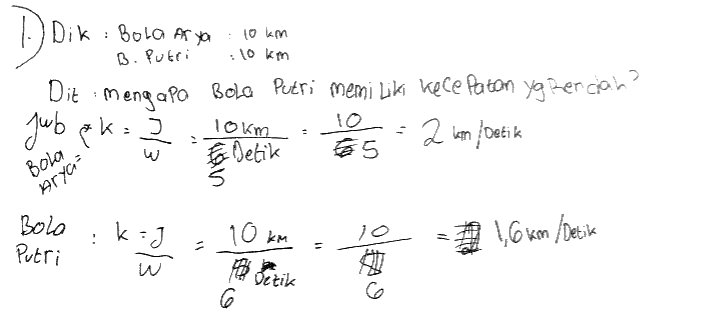 1.) Dik : Bola Arya : 10 km
B. Putri : 10 km
Dit : mengapa Bola Putri memiliki kecepatan yg Rendah?
Jwb Bola Arya = * k = J/W = 10 km/5 Detik = 10/5 = 2 km/Detik
Bola Putri : k = J/W = 10 km/6 Detik = 10/6 = 1,6 km/Detik